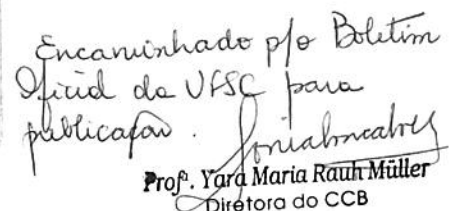 Encaminhado p/o Boletim
Oficial da UFSC para
publicação.
Profª. Yara Maria Rauh Müller
Diretora do CCB